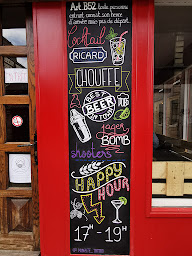 Art. B52 toute personne
entrant connait son heure
d'arrivée mais pas de départ.
Cocktail
RICARD
CHOUFFE
BEST
BEER
PUB
IN TOWN
Jager
BOMB
shooters
HAPPY
HOUR
17H - 19H